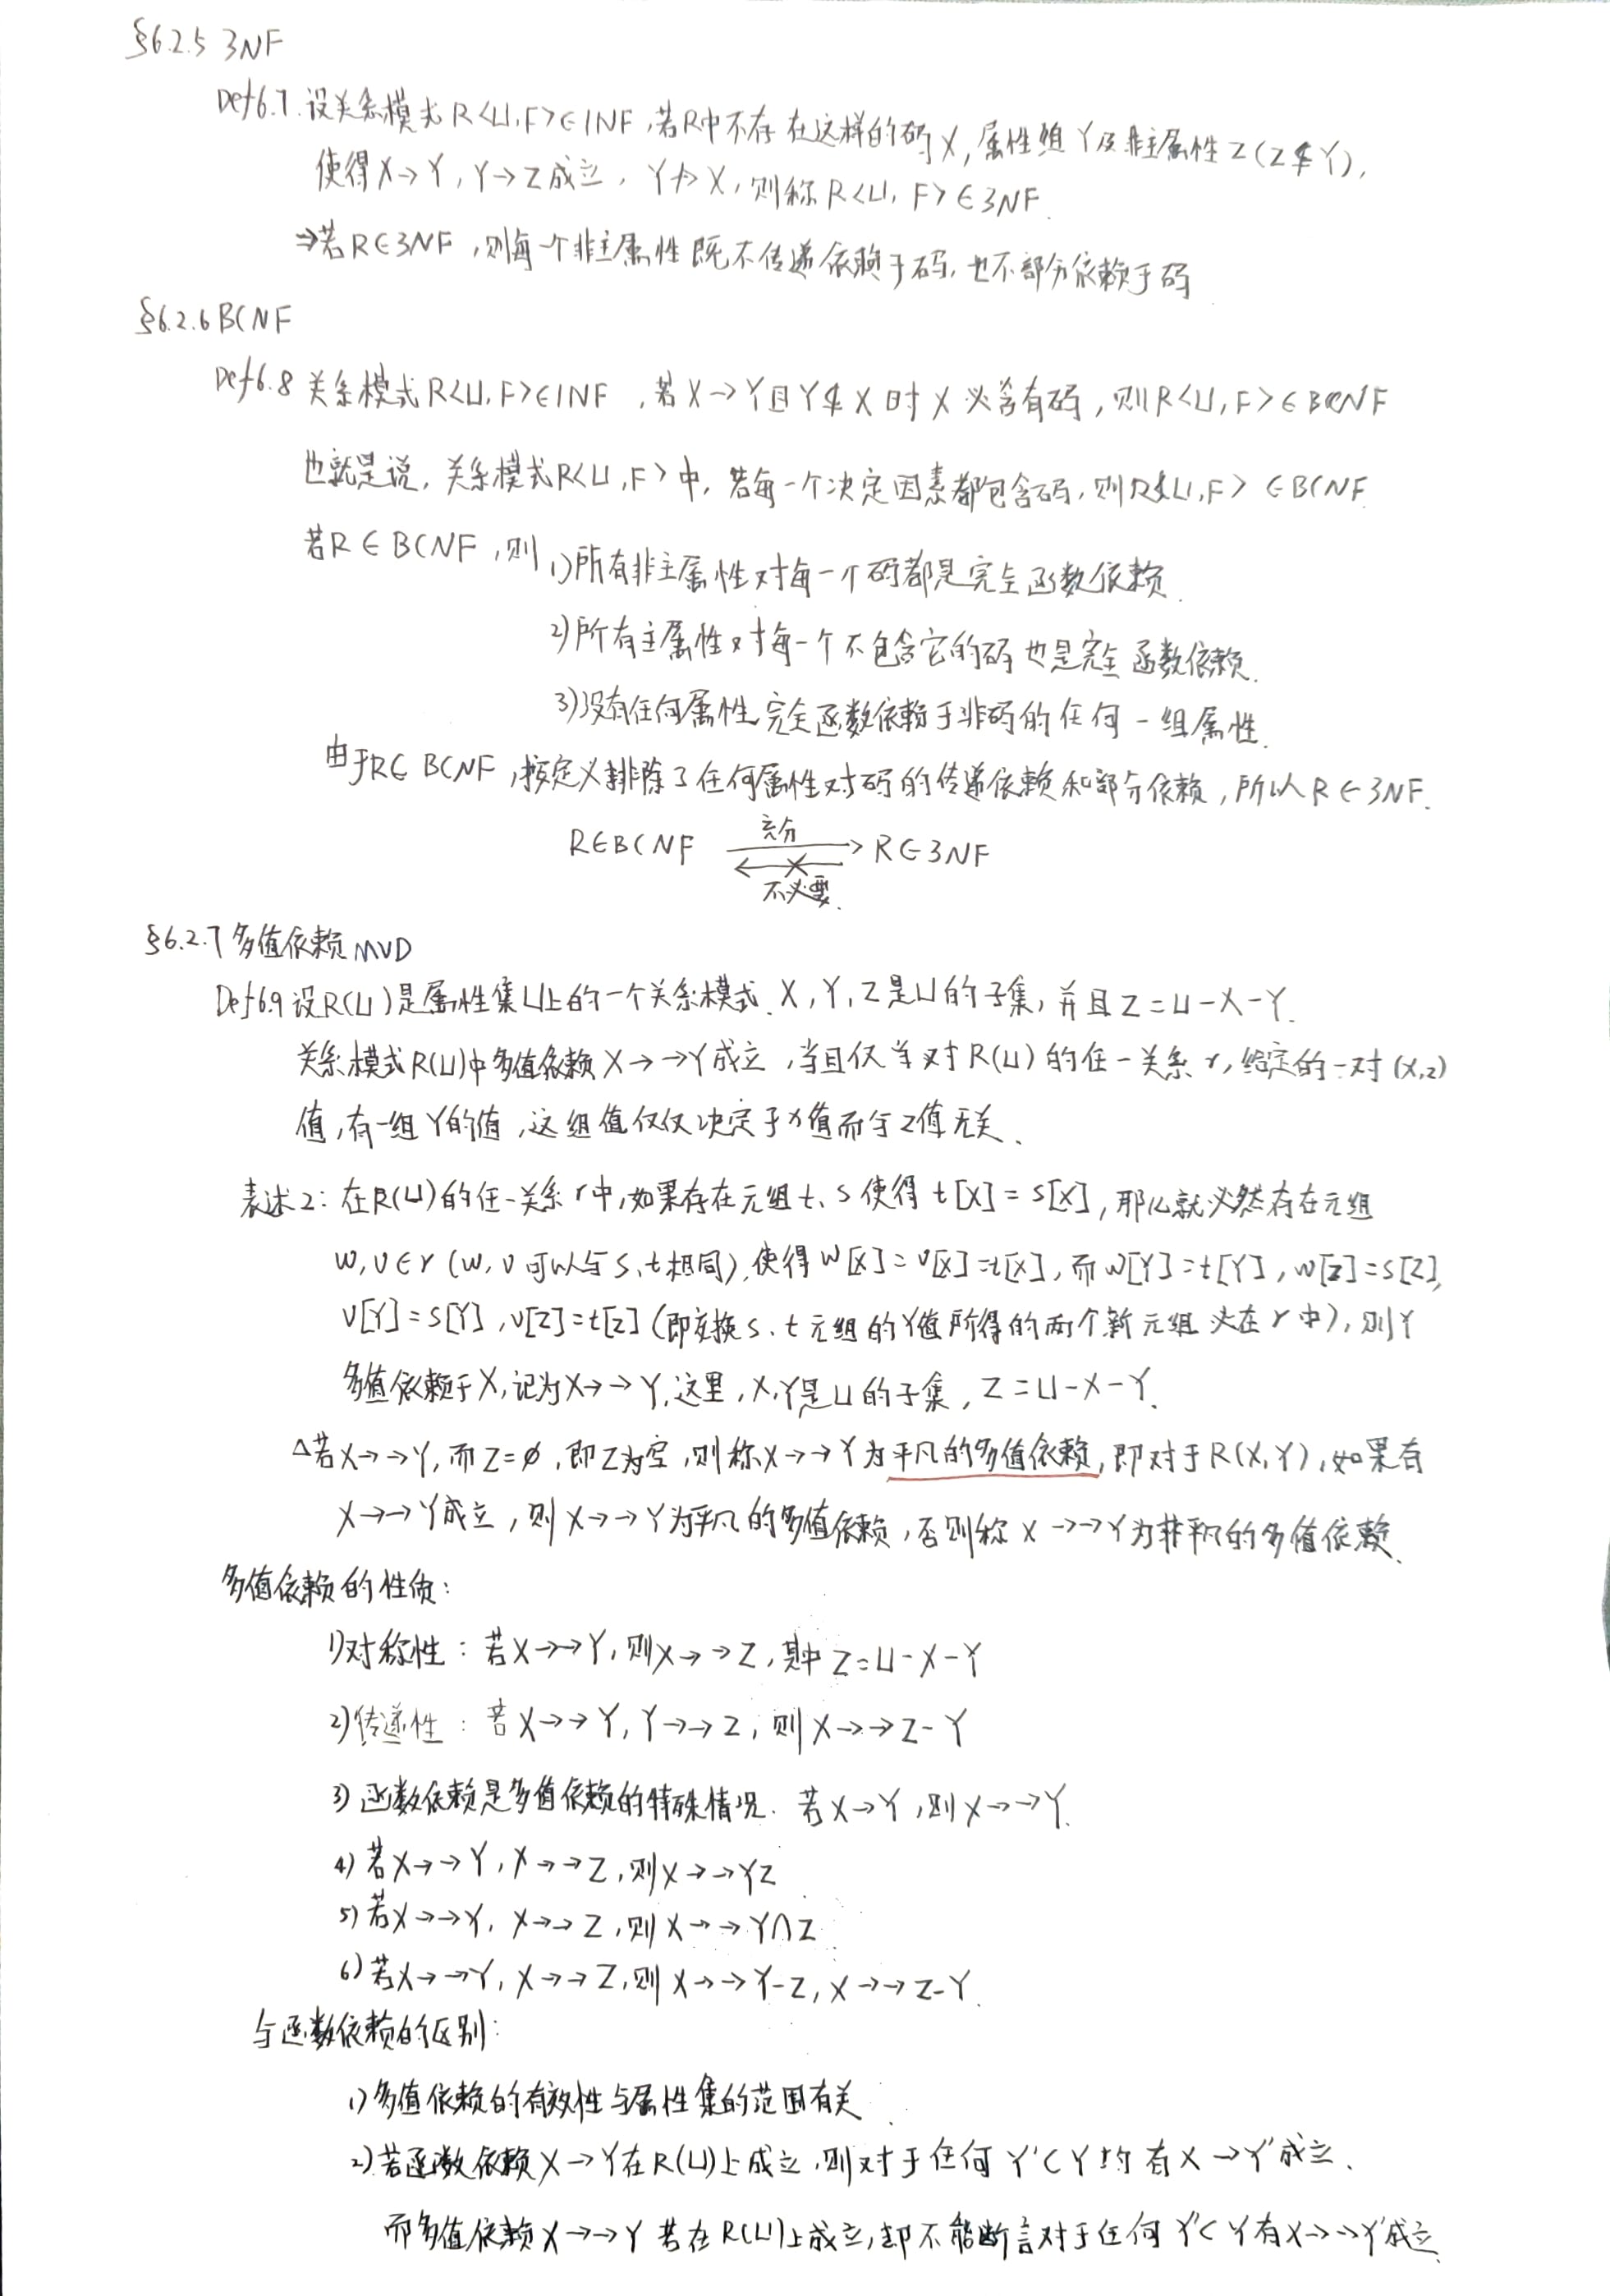 §6.2.5 3NF
Def6.7. 设关系模式R<U,F>∈1NF,若R中不存在这样的码X,属性组Y及非主属性Z(Z⊈Y),
使得X→Y,Y→Z成立,Y↛X,则称R<U,F>∈3NF.
⇒若R∈3NF,则每一个非主属性既不传递依赖于码,也不部分依赖于码
§6.2.6 BCNF
Def6.8 关系模式R<U,F>∈1NF,若X→Y且Y⊈X时X必含有码,则R<U,F>∈BCNF
也就是说,关系模式R<U,F>中,若每一个决定因素都包含码,则R<U,F>∈BCNF
若R∈BCNF,则 1)所有非主属性对每一个码都是完全函数依赖.
2)所有主属性对每一个不包含它的码也是完全函数依赖.
3)没有任何属性完全函数依赖于非码的任何一组属性.
由于R∈BCNF,按定义排除了任何属性对码的传递依赖和部分依赖,所以R∈3NF.
充分
R∈BCNF ⟶ R∈3NF
不必要.
§6.2.7 多值依赖MVD
Def6.9 设R(U)是属性集U上的一个关系模式.X,Y,Z是U的子集,并且Z=U-X-Y.
关系模式R(U)中多值依赖X→→Y成立,当且仅当对R(U)的任一关系r,给定的一对(x,z)
值,有一组Y的值,这组值仅仅决定于x值而与z值无关、
表述2:在R(U)的任一关系r中,如果存在元组t、s使得t[X]=s[X],那么就必然存在元组
w,v∈r(w,v可以与s、t相同),使得w[X]=v[X]=t[X],而w[Y]=t[Y],w[Z]=s[Z],
v[Y]=s[Y],v[Z]=t[Z](即交换s、t元组的Y值所得的两个新元组必在r中),则Y
多值依赖于X,记为X→→Y.这里,X,Y是U的子集,Z=U-X-Y.
△若X→→Y,而Z=∅,即Z为空,则称X→→Y为平凡的多值依赖,即对于R(X,Y),如果有
X→→Y成立,则X→→Y为平凡的多值依赖,否则称X→→Y为非平凡的多值依赖、
多值依赖的性质:
1)对称性:若X→→Y,则X→→Z,其中Z=U-X-Y
2)传递性:若X→→Y,Y→→Z,则X→→Z-Y
3)函数依赖是多值依赖的特殊情况.若X→Y,则X→→Y.
4)若X→→Y,X→→Z,则X→→YZ
5)若X→→Y,X→→Z,则X→→Y∩Z
6)若X→→Y,X→→Z,则X→→Y-Z,X→→Z-Y.
与函数依赖的区别:
1)多值依赖的有效性与属性集的范围有关.
2)若函数依赖X→Y在R(U)上成立,则对于任何Y'⊂Y均有X→Y'成立、
而多值依赖X→→Y若在R(U)上成立,却不能断言对于任何Y'⊂Y有X→→Y'成立.